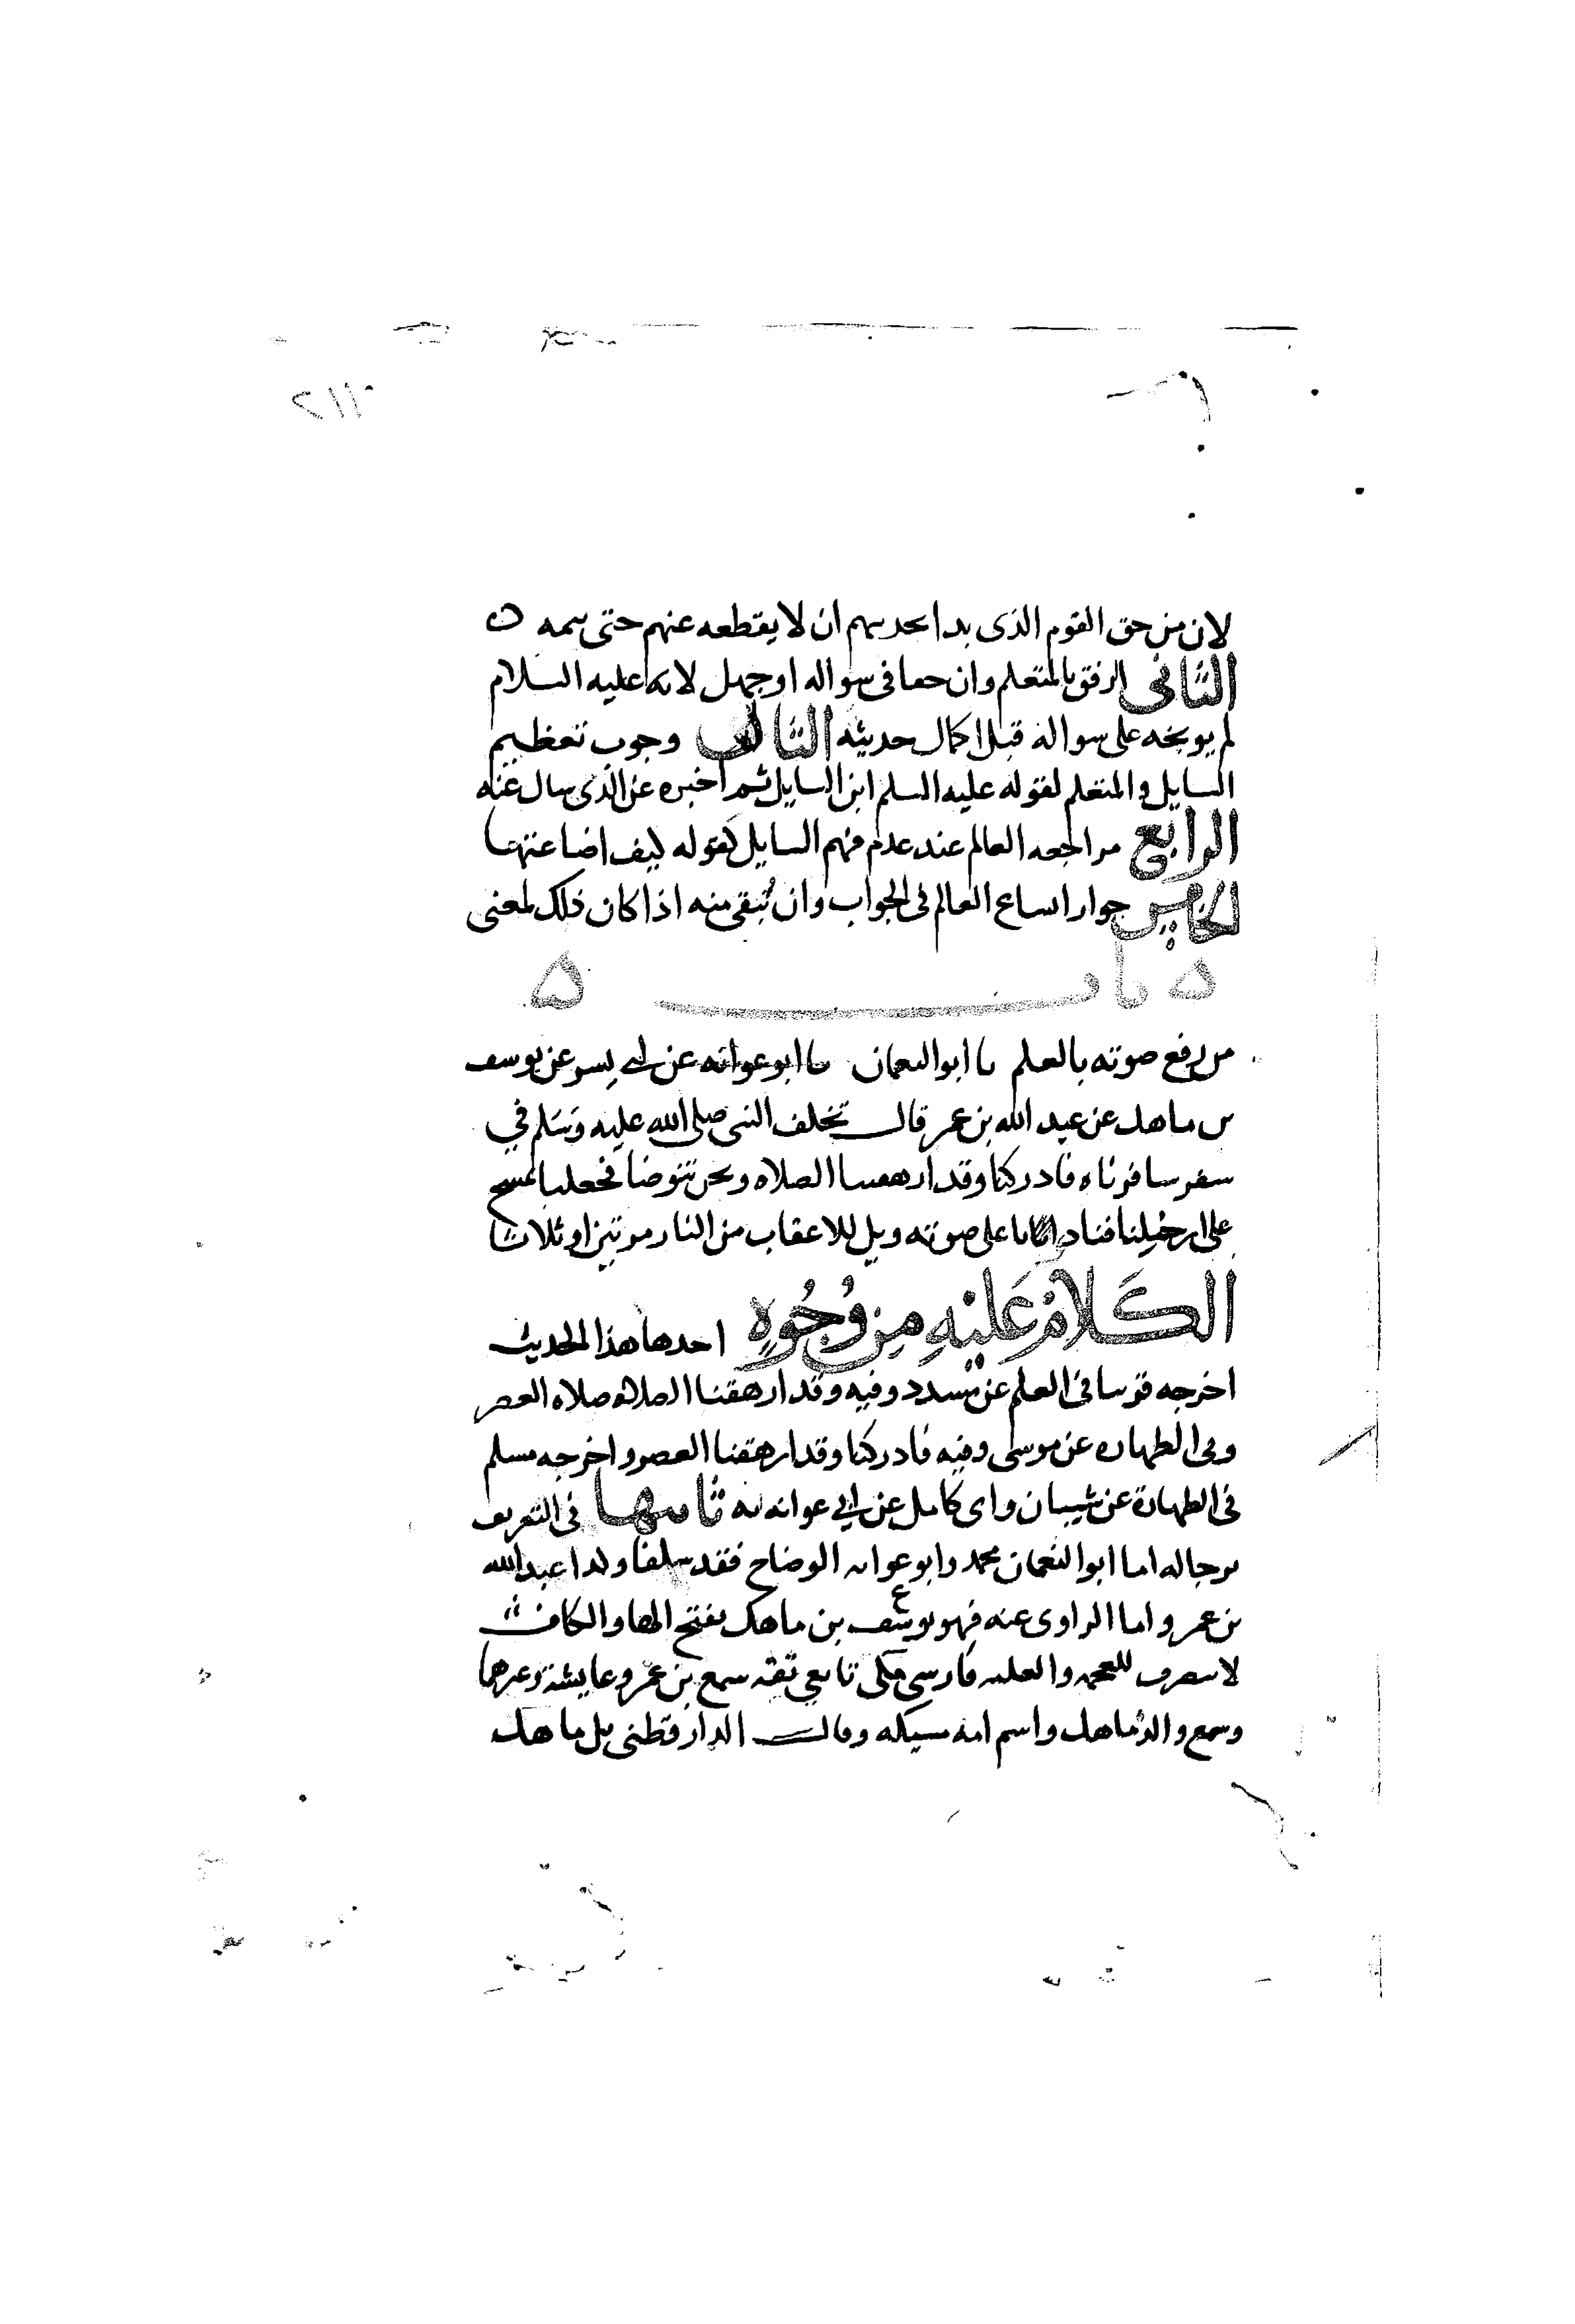 ٢١١
لان من حق القوم الذى بدا بحديثهم ان لا يقطعه عنهم حتى يتمه ن
الثانى الرفق بالمتعلم وان جفا فى سواله او جهل لانه عليه السلام
لم يوبخه على سواله قبل اكمال حديثه الثالث وجوب تعظيم
السايل والمتعلم لقوله عليه السلم اين السايل ثم اخبره عن الذى سال عنه
الرابع مراجعه العالم عند عدم فهم السايل كقوله كيف اضاعتها
الخامس جواز اتساع العالم فى الجواب وان يُبقى منه اذا كان ذلك لمعنى
ه باب ه
من رفع صوته بالعلم نا ابو النعمان نا ابو عوانه عن ابى بشر عن يوسف
بن ماهك عن عبد الله بن عمر قال تخلف النبى صلى الله عليه وسلم في
سفر سافرناه فادركنا وقد ارهقتنا الصلاه ونحن نتوضا فجعلنا نمسح
على ارجلنا فنادا باعلى صوته ويل للاعقاب من النار مرتين او ثلاثا
الكَلامُ عَليْهِ مِن وُجُوهٍ احدها هذا الحديث
اخرجه قريبا فى العلم عن مسدد وفيه وقد ارهقتنا الصلاة صلاه العصر
وفى الطهاره عن موسى وفيه فادركنا وقد ارهقتنا العصر واخرجه مسلم
فى الطهارة عن شيبان وابى كامل عن ابي عوانه به ثانيها فى التعريف
برجاله اما ابو النعمان محمد وابو عوانه الوضاح فقد سلفا وكذا عبد الله
بن عمرو اما الراوى عنه فهو يوسف بن ماهك بفتح الهاء والكاف
لا ينصرف للعجمه والعلميه فارسى مكى تابعي ثقه سمع بن عمرو عايشة وغيرهما
وسمع والده ماهك واسم امه مسيكه وقال الدارقطنى بل ماهك